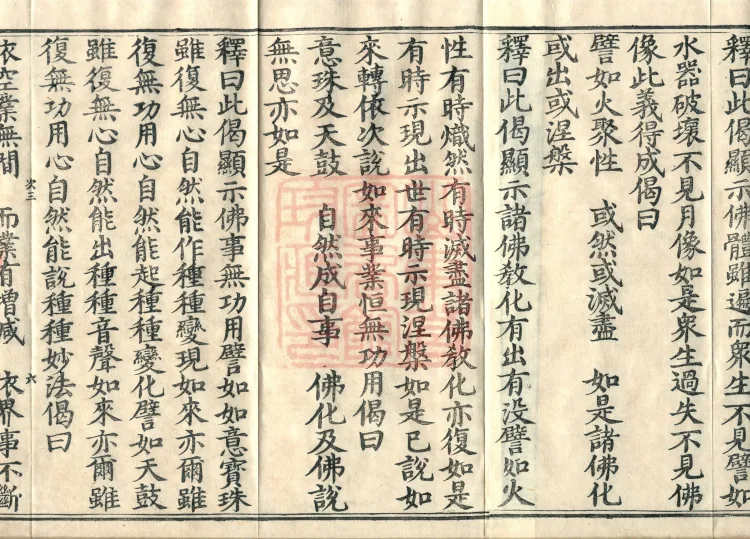 釋曰此偈顯示佛體雖遍而衆生不見譬如
水器破壞不見月像如是衆生過失不見佛
像此義得成偈曰
譬如火聚性 或然或滅盡 如是諸佛化
或出或涅槃
釋曰此偈顯示諸佛教化有出有没譬如火
性有時熾然有時滅盡諸佛教化亦復如是
有時示現出世有時示現涅槃如是已說如
來轉依次說如來事業恒無功用偈曰
意珠及天鼓 自然成自事 佛化及佛說
無思亦如是
釋曰此偈顯示佛事無功用譬如如意寶珠
雖復無心自然能作種種變現如來亦爾雖
復無功用心自然能起種種變化譬如天鼓
雖復無心自然能出種種音聲如來亦爾雖
復無功用心自然能說種種妙法偈曰
次三 六
依空業無間 而業有增減 依界事不斷